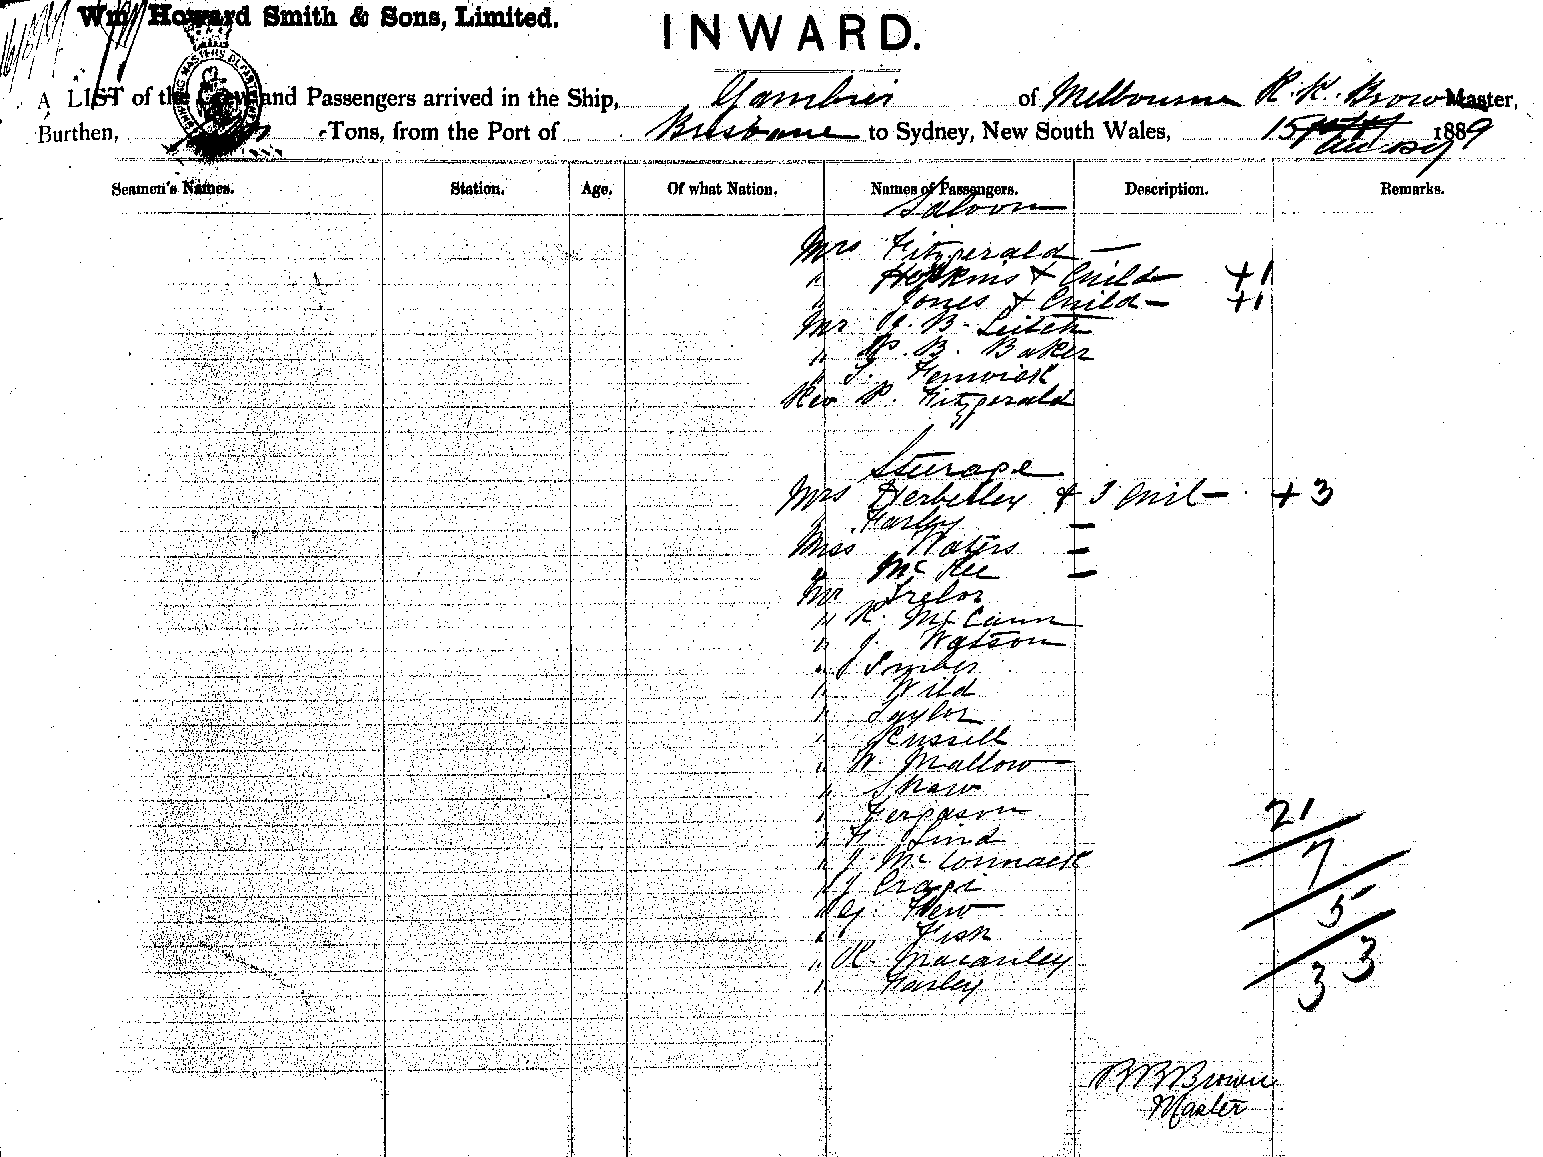 Wm. Howard Smith & Sons, Limited.
INWARD.
A LIST of the Crew and Passengers arrived in the Ship, Gambier of Melbourne R. K. Brown Master,
Burthen, Tons, from the Port of Brisbane to Sydney, New South Wales, 15 1889
Seamen's Names. Station. Age. Of what Nation. Names of Passengers. Description. Remarks.
Saloon
Mrs Fitzgerald —
" Hopkins & Child — +1
" Jones & Child — +1
Mr B. Leitch
" B. Baker
" Fenwick
Rev P. Fitzgerald
Steerage
Mrs & 3 Chil — +3
" Farley —
Miss Waters —
" McKee —
Mr Trelor
" R. McCann
" J. Watson
" J Imber
" Wild
" Taylor
" Russell
" W. Mallow
" Shaw
" Fergason
" Lind
" J. McConnack
" J
" G.
" Fish
" R. Macauley
" Farley
21
7
5
3
3
Brown
Master